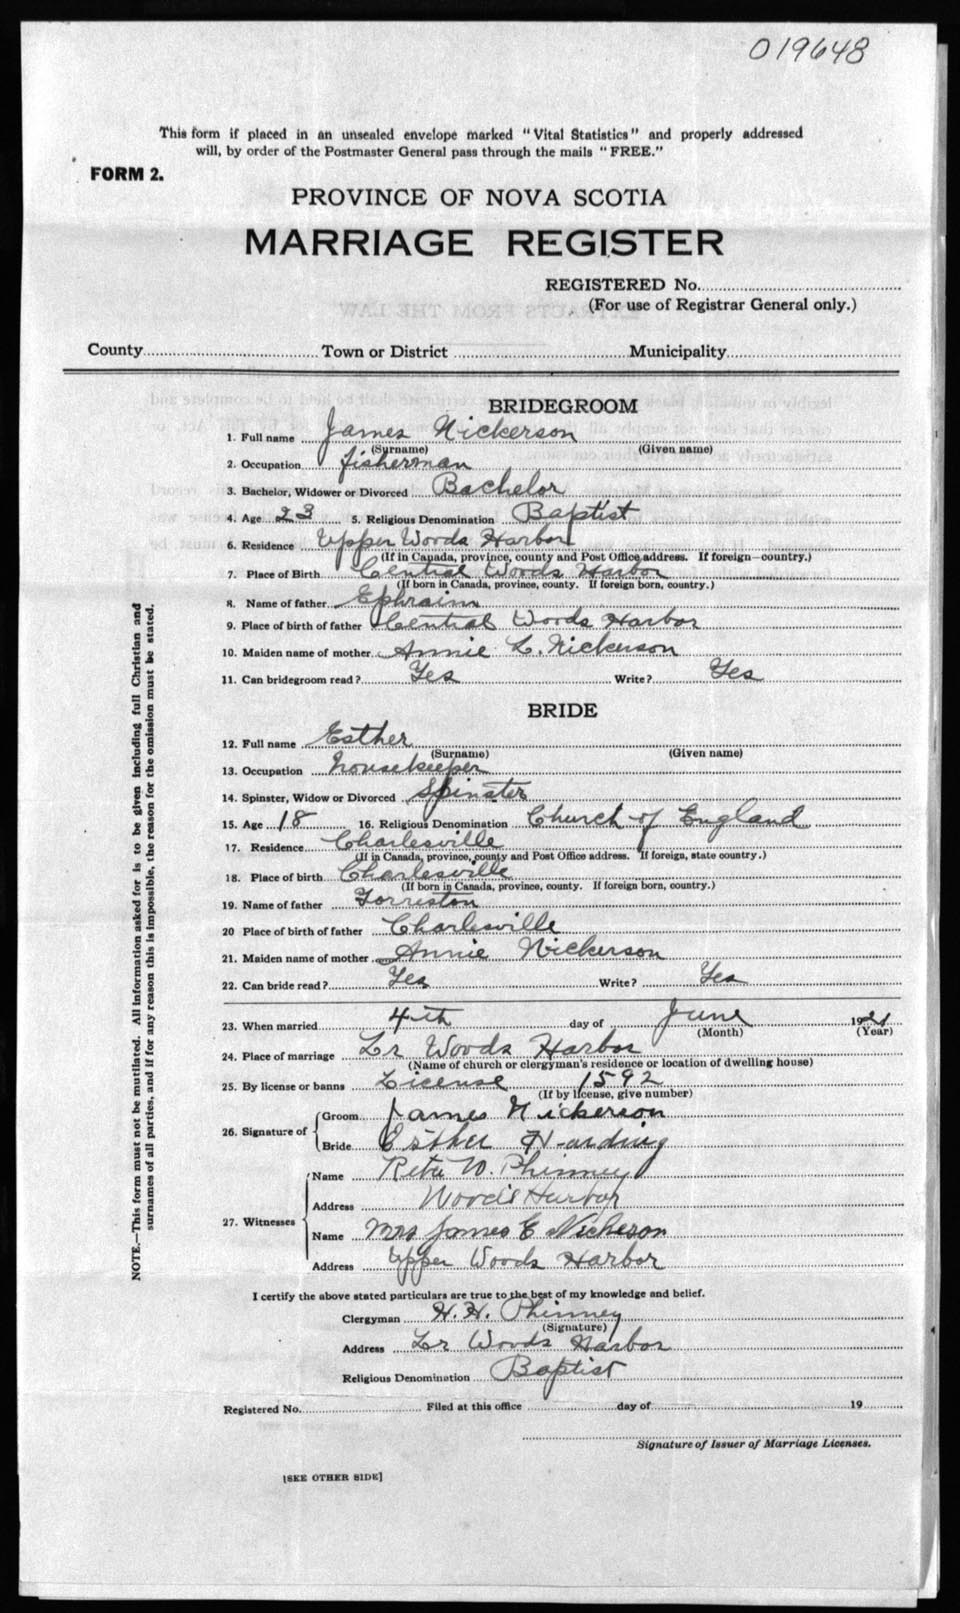 019648
This form if placed in an unsealed envelope marked "Vital Statistics" and properly addressed
will, by order of the Postmaster General pass through the mails "FREE."
FORM 2.
PROVINCE OF NOVA SCOTIA
MARRIAGE REGISTER
REGISTERED No.
(For use of Registrar General only.)
County Town or District Municipality
BRIDEGROOM
1. Full name James Nickerson
(Surname) (Given name)
2. Occupation fisherman
3. Bachelor, Widower or Divorced Bachelor
4. Age 23 5. Religious Denomination Baptist
6. Residence Upper Woods Harbor
(If in Canada, province, county and Post Office address. If foreign—country.)
7. Place of Birth Central Woods Harbor
(If born in Canada, province, county. If foreign born, country.)
8. Name of father Ephraim
9. Place of birth of father Central Woods Harbor
10. Maiden name of mother Annie L. Nickerson
11. Can bridegroom read? Yes Write? Yes
BRIDE
12. Full name Esther
(Surname) (Given name)
13. Occupation housekeeper
14. Spinster, Widow or Divorced Spinster
15. Age 18 16. Religious Denomination Church of England
17. Residence Charlesville
(If in Canada, province, county and Post Office address. If foreign, state country.)
18. Place of birth Charlesville
(If born in Canada, province, county. If foreign born, country.)
19. Name of father Forriston
20 Place of birth of father Charlesville
21. Maiden name of mother Annie Nickerson
22. Can bride read? Yes Write? Yes
23. When married 4th day of June 1921
(Month) (Year)
24. Place of marriage Lr Woods Harbor
(Name of church or clergyman's residence or location of dwelling house)
25. By license or banns License 1592
(If by license, give number)
26. Signature of Groom James Nickerson
Bride Esther Harding
27. Witnesses Name Reta W. Phinney
Address Woods Harbor
Name Mrs James E Nickerson
Address Upper Woods Harbor
I certify the above stated particulars are true to the best of my knowledge and belief.
Clergyman H. H. Phinney
(Signature)
Address Lr Woods Harbor
Religious Denomination Baptist
Registered No. Filed at this office day of 19
Signature of Issuer of Marriage Licenses.
[SEE OTHER SIDE]
NOTE.—This form must not be mutilated. All information asked for is to be given including full Christian and
surnames of all parties, and if for any reason this is impossible, the reason for the omission must be stated.